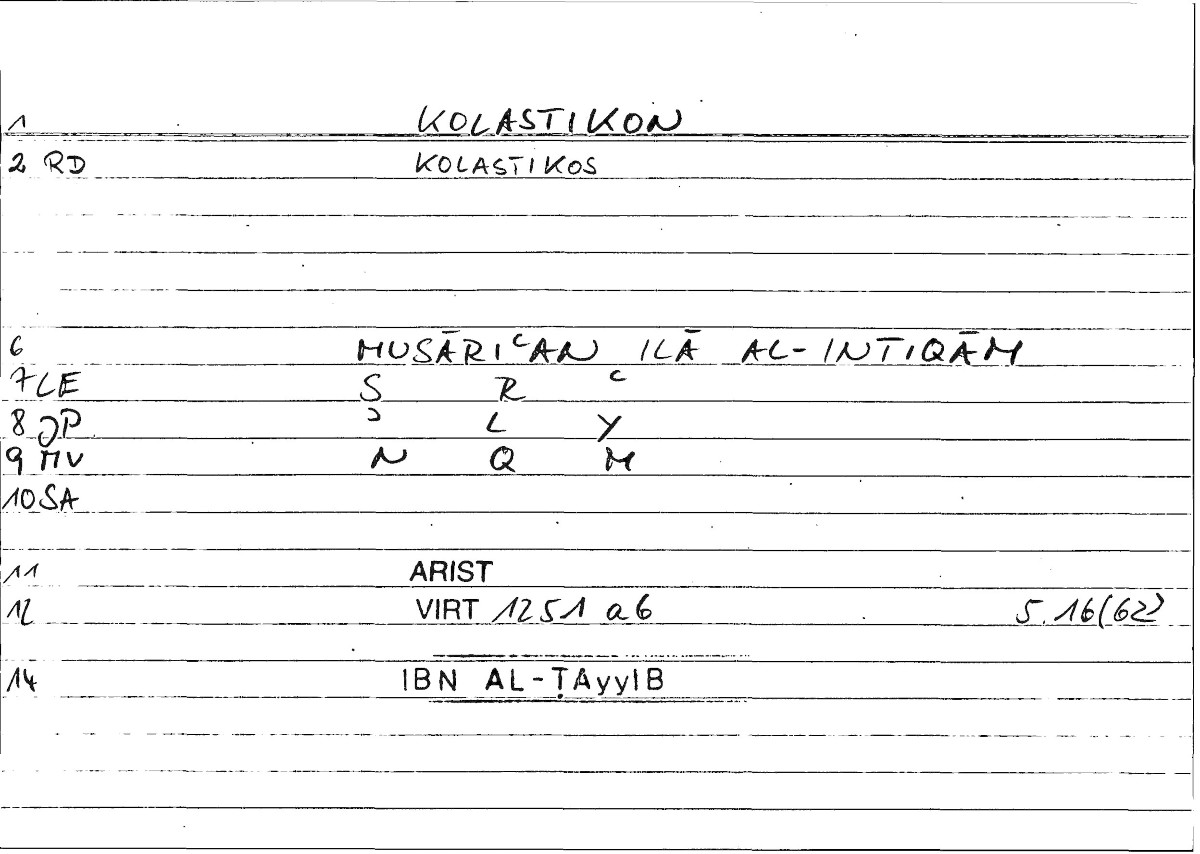 1 KOLASTIKON
2 RD KOLASTIKOS
6 MUSĀRIᶜAN ILĀ AL-INTIQĀM
7 LE S R ᶜ
8 JP ᵓ L Y
9 MV N Q M
10 SA
11 ARIST
12 VIRT 1251 a6 5.16(62)
14 IBN AL-ṬAyyIB